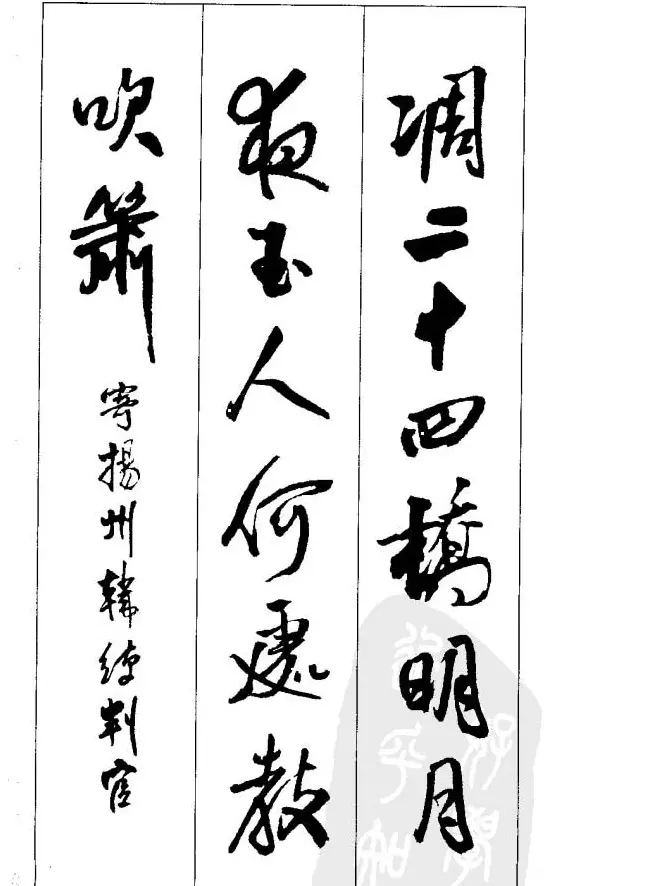 凋二十四橋明月
夜玉人何處教
吹簫
寄揚州韓綽判官